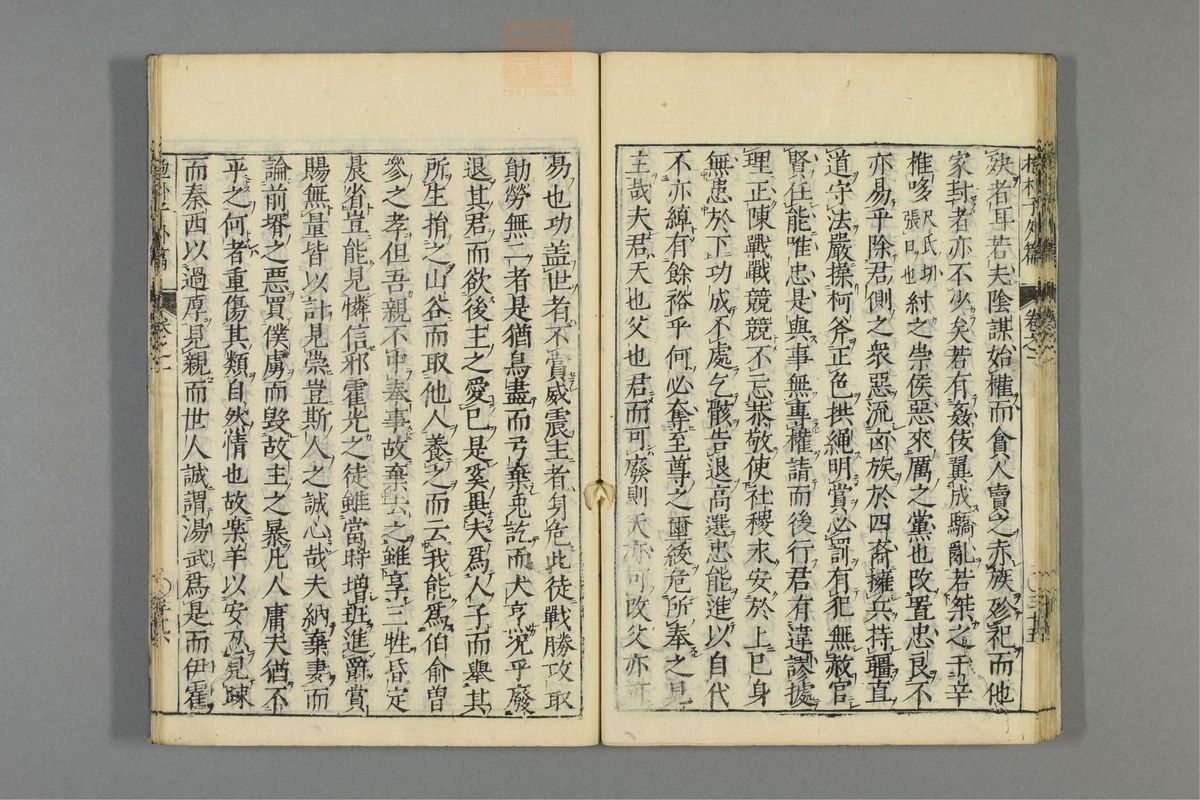 抱朴子外篇 卷之一 〇三十五
殃者耳若夫陰謀始權而貪人賣之赤族殄祀而他
家封者亦不少矣若有姦佞翼成驕亂若桀之干辛
推哆尺氏切張口也紂之崇侯惡來厲之黨也改置忠良不
亦易乎除君側之衆惡流凶族於四裔擁兵持疆直
道守法嚴操柯斧正色拱繩明賞必罰有犯無赦官
賢任能唯忠是與事無專權請而後行君有違謬據
理正陳戰戰競競不忘恭敬使社稷永安於上已身
無患於下功成不處乞骸告退高選忠能進以自代
不亦綽有餘裕乎何必奪至尊之璽紱危所奉之見
主哉夫君天也父也君而可廢則天亦可改父亦可
易也功盖世者不賞威震主者身危此徒戰勝攻取
勛勞無二者是猶鳥盡而弓棄兎訖而犬烹況乎廢
退其君而欲後主之愛已是奚異夫爲人子而舉其
所生捐之山谷而取他人養之而云我能爲伯俞曽
參之孝但吾親不中奉事故棄去之雖享三牲昏定
晨省豈能見憐信邪霍光之徒雖當時増班進爵賞
賜無量皆以計見崇豈斯人之誠心哉夫納棄妻而
論前壻之惡買僕虜而毀故主之暴凡人庸夫猶不
平之何者重傷其類自然情也故楽羊以安忍見踈
而秦西以過厚見親而世人誠謂湯武爲是而伊霍
抱朴子外篇 卷之一 〇三十六
zysj.com.cn